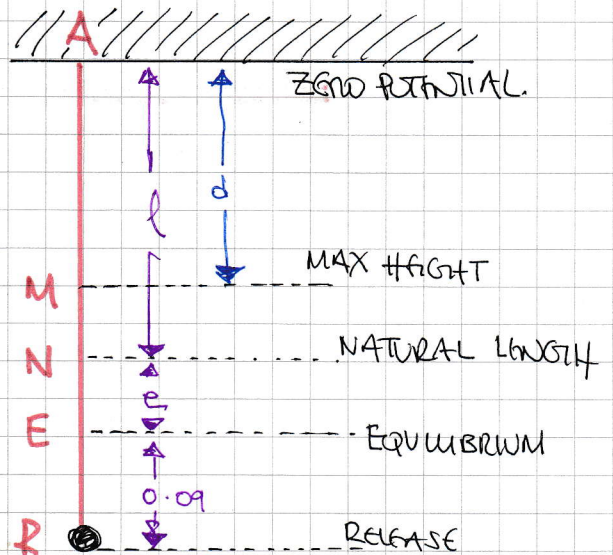 A
ZERO POTENTIAL.
l
d
M
MAX HEIGHT
N
NATURAL LENGTH
e
E
EQUILIBRIUM
0.09
R
RELEASE